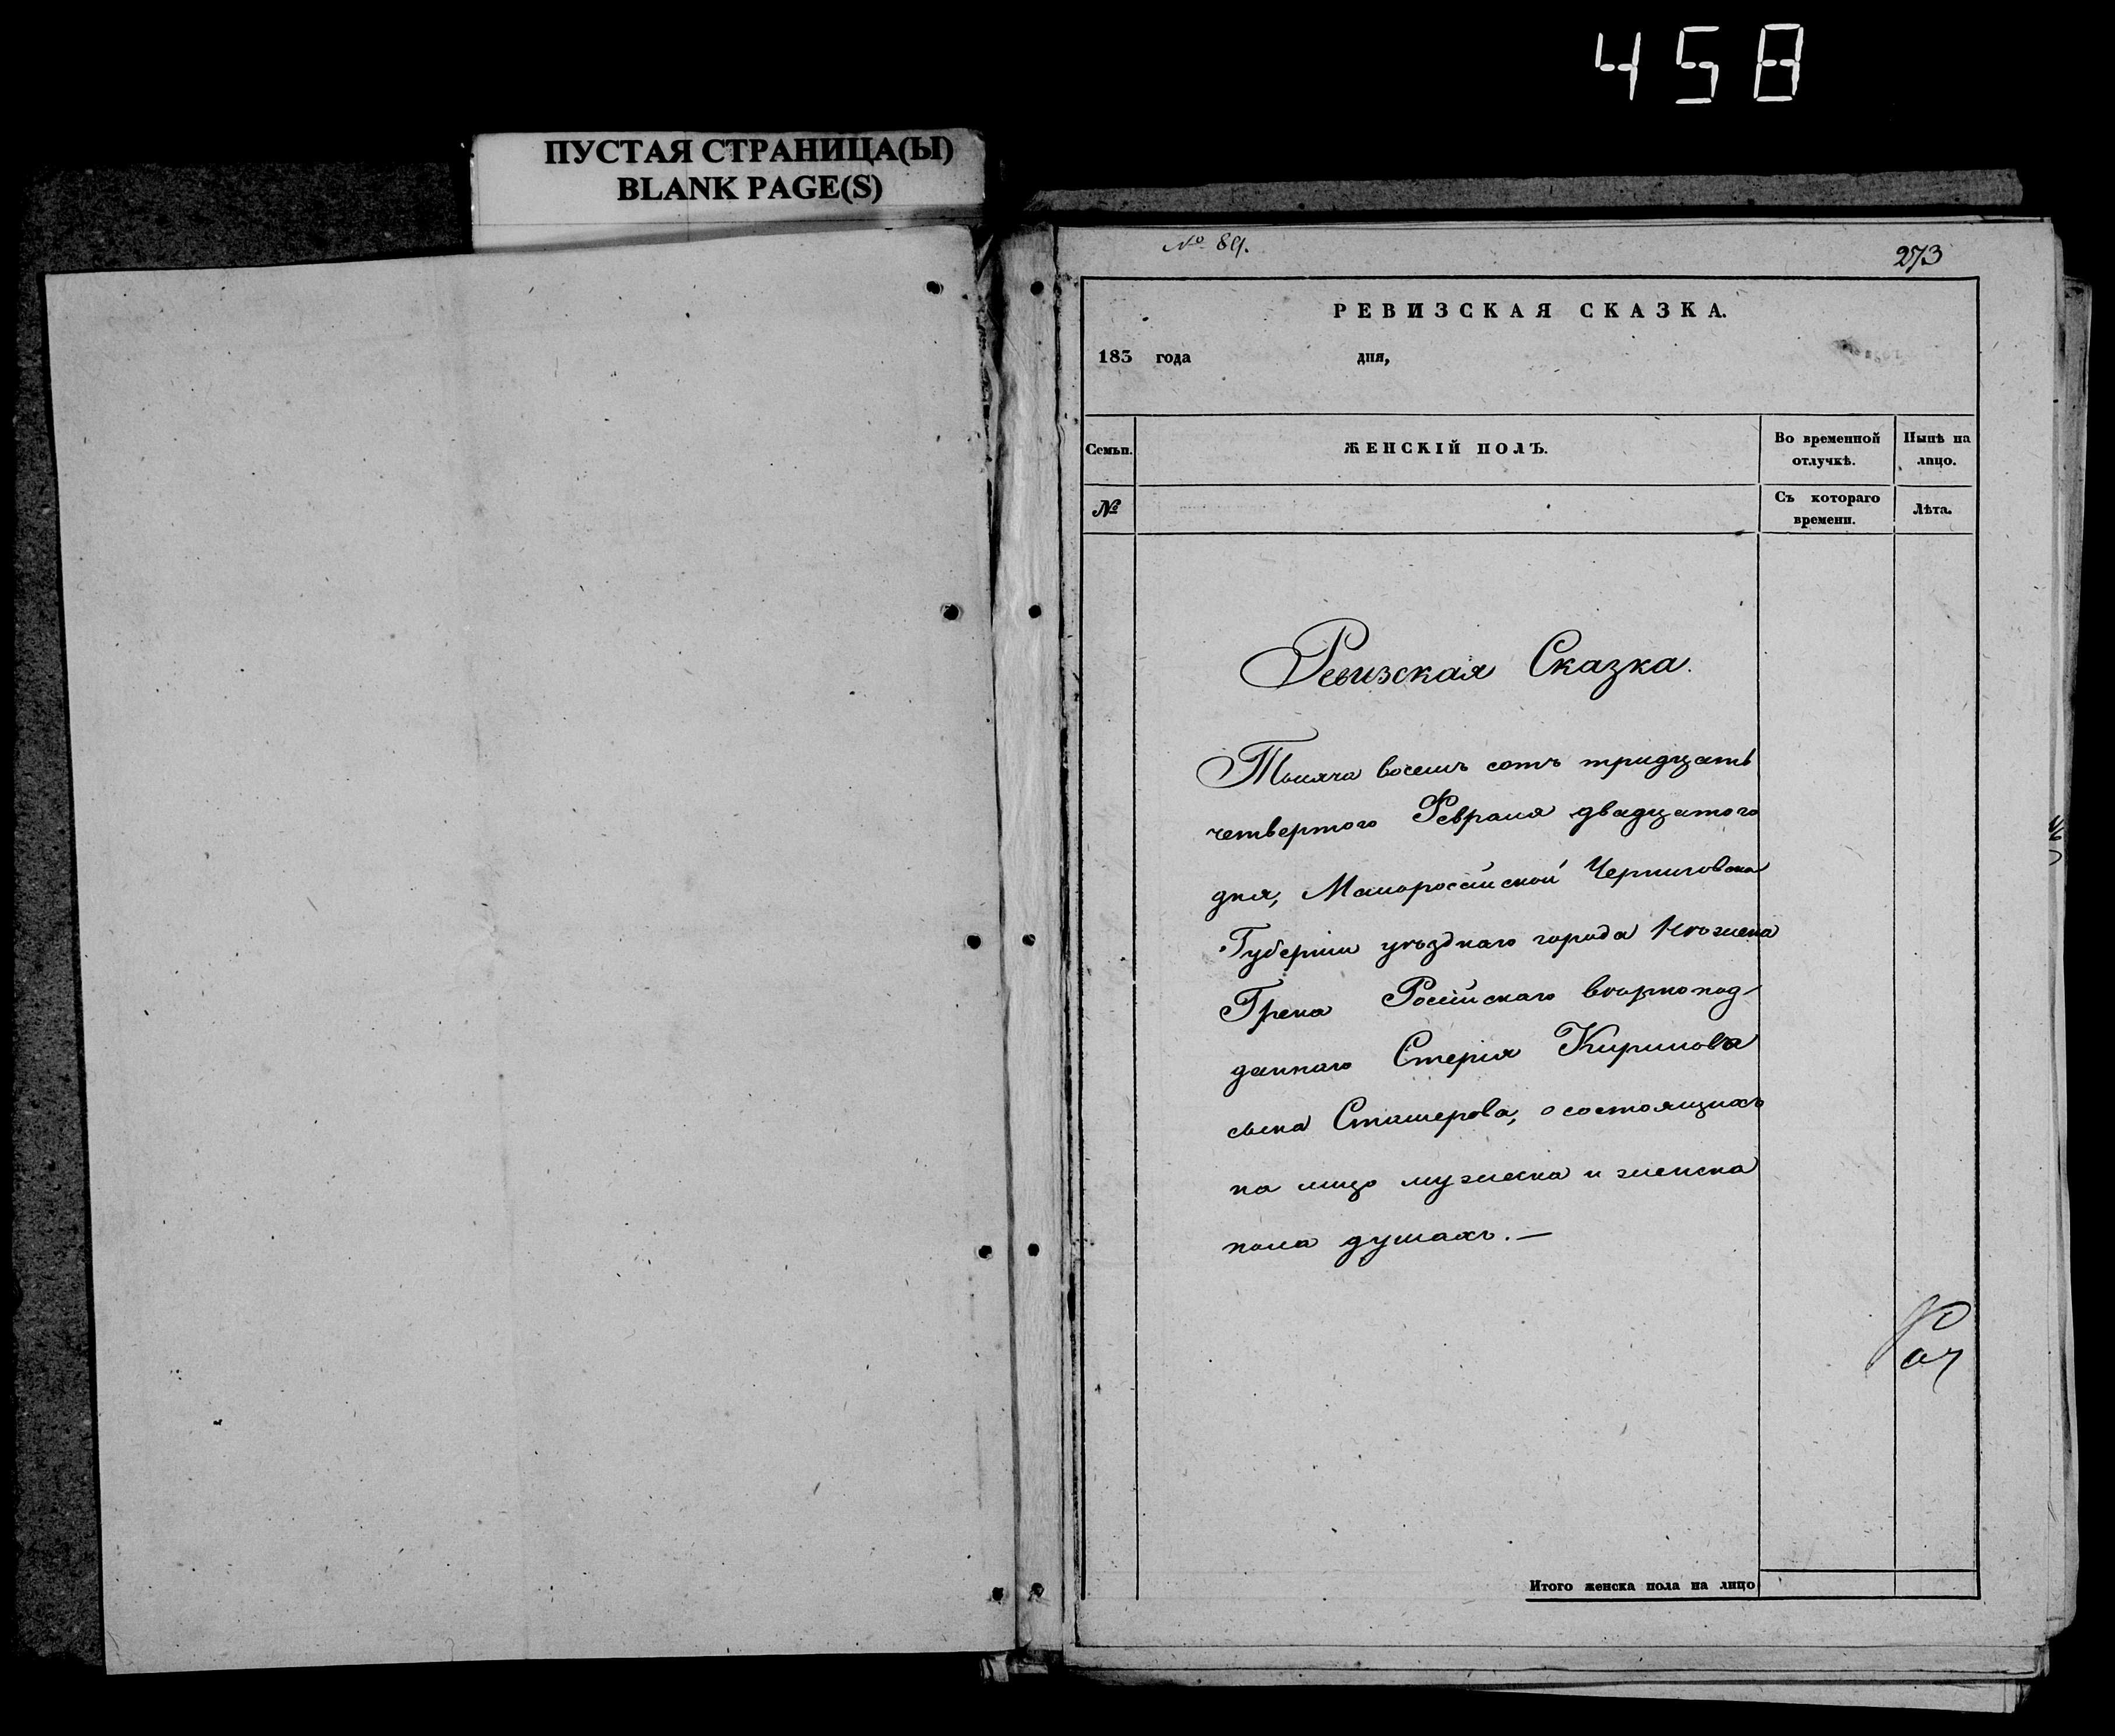 458
ПУСТАЯ СТРАНИЦА(Ы)
BLANK PAGE(S)
№ 89.
273
РЕВИЗСКАЯ СКАЗКА.
183 года дня,
Семьи.
ЖЕНСКІЙ ПОЛЪ.
Во временной отлучкѣ.
Нынѣ на лицо.
№
Съ котораго времени.
Лѣта.
Ревизская Сказка.
Тысяча восемъ сотъ тридцать
четвертого Февраля двадцатого
дня, Малоросійской Черниговской
Губерніи уѣзднаго города Нѣжина
Грека Російскаго вѣрнопод-
даннаго Стерія Кирилова
сына Сташерова, о состоящихъ
на лицо мужеска и женска
пола душахъ. —
Итого женска пола на лицо